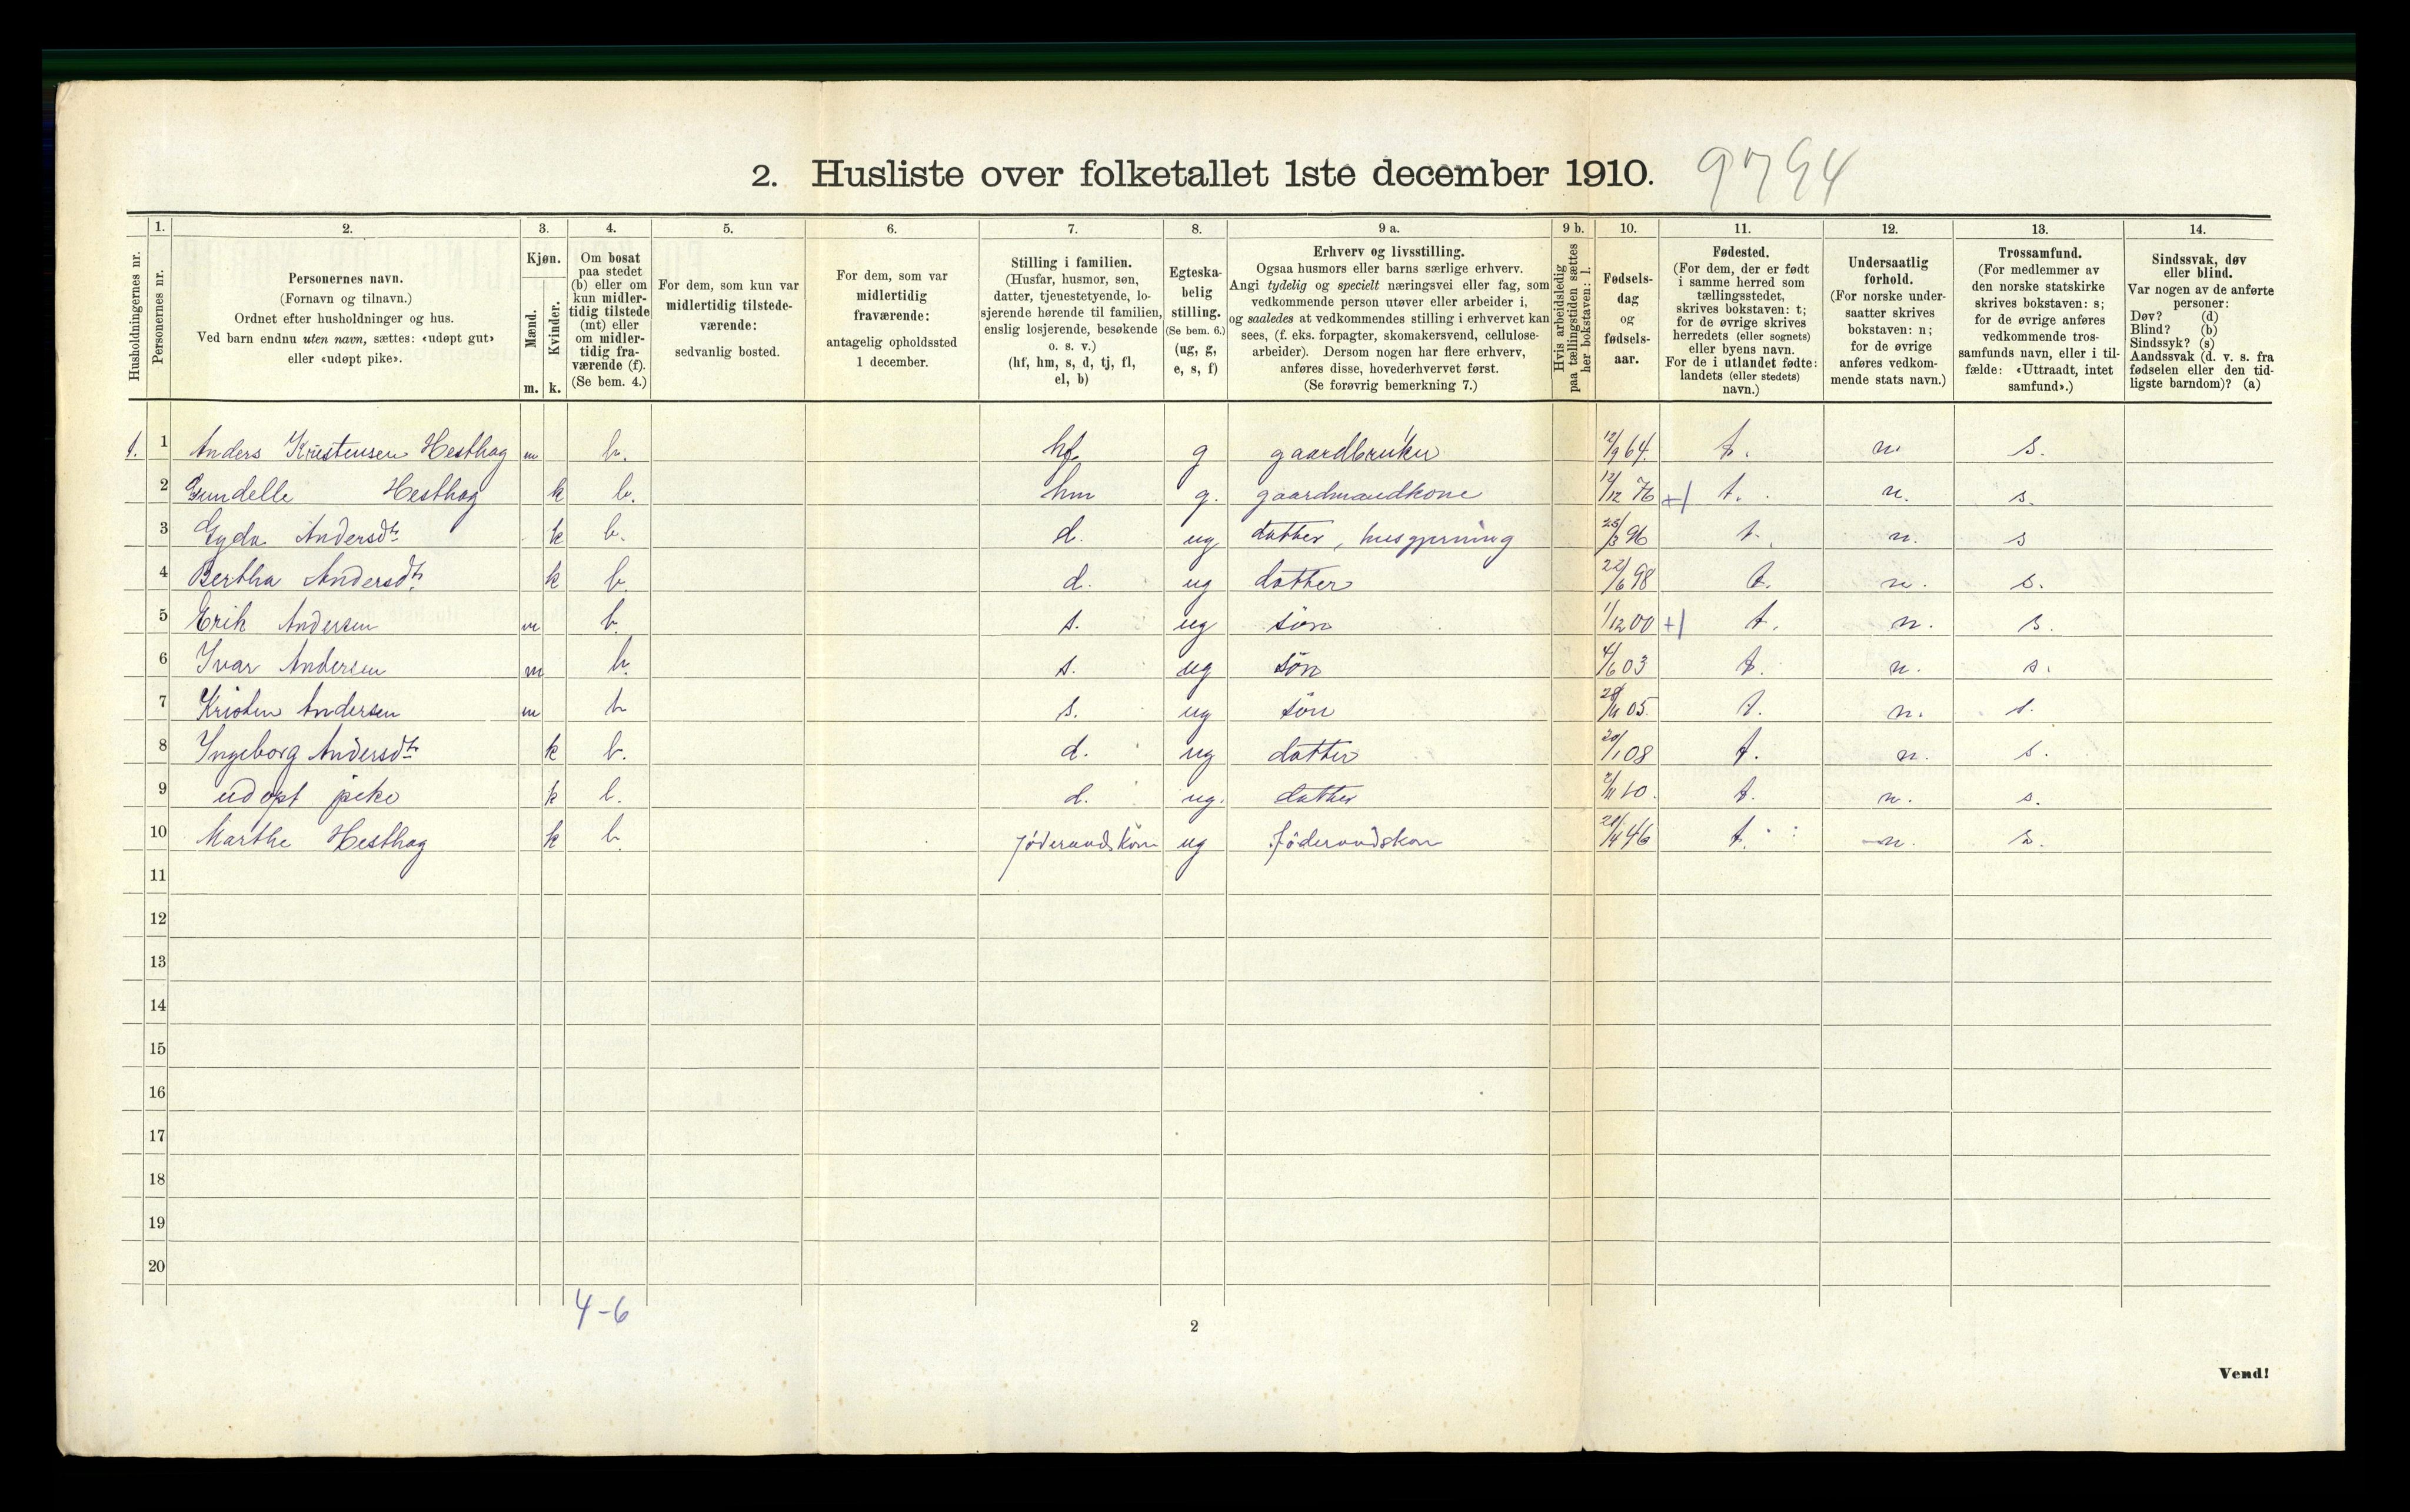 2. Husliste over folketallet 1ste december 1910. 9794
Husholdningernes nr.
1. Personernes nr.
2. Personernes navn.
(Fornavn og tilnavn.)
Ordnet efter husholdninger og hus.
Ved barn endnu uten navn, sættes: «udøpt gut»
eller «udøpt pike».
3. Kjøn.
Mænd. m.
Kvinder. k.
4. Om bosat
paa stedet
(b) eller om
kun midler-
tidig tilstede
(mt) eller
om midler-
tidig fra-
værende (f).
(Se bem. 4.)
5. For dem, som kun var
midlertidig tilstede-
værende:
sedvanlig bosted.
6. For dem, som var
midlertidig
fraværende:
antagelig opholdssted
1 december.
7. Stilling i familien.
(Husfar, husmor, søn,
datter, tjenestetyende, lo-
sjerende hørende til familien,
enslig losjerende, besøkende
o. s. v.)
(hf, hm, s, d, tj, fl,
el, b)
8. Egteska-
belig
stilling.
(Se bem. 6.)
(ug, g,
e, s, f)
9 a. Erhverv og livsstilling.
Ogsaa husmors eller barns særlige erhverv.
Angi tydelig og specielt næringsvei eller fag, som
vedkommende person utøver eller arbeider i,
og saaledes at vedkommendes stilling i erhvervet kan
sees, (f. eks. forpagter, skomakersvend, cellulose-
arbeider). Dersom nogen har flere erhverv,
anføres disse, hovederhvervet først.
(Se forøvrig bemerkning 7.)
9 b. Hvis arbeidsledig
paa tællingstiden sættes
her bokstaven: l.
10. Fødsels-
dag
og
fødsels-
aar.
11. Fødested.
(For dem, der er født
i samme herred som
tællingsstedet,
skrives bokstaven: t;
for de øvrige skrives
herredets (eller sognets)
eller byens navn.
For de i utlandet fødte:
landets (eller stedets)
navn.)
12. Undersaatlig
forhold.
(For norske under-
saatter skrives
bokstaven: n;
for de øvrige
anføres vedkom-
mende stats navn.)
13. Trossamfund.
(For medlemmer av
den norske statskirke
skrives bokstaven: s;
for de øvrige anføres
vedkommende tros-
samfunds navn, eller i til-
fælde: «Uttraadt, intet
samfund».)
14. Sindssvak, døv
eller blind.
Var nogen av de anførte
personer:
Døv? (d)
Blind? (b)
Sindssyk? (s)
Aandssvak (d. v. s. fra
fødselen eller den tid-
ligste barndom)? (a)
1. 1 Anders Kristensen Hesthag m b. hf g gaardbruker 12/9 64. t. n. s.
2 Gundelle Hesthag k b. hm g. gaardmandkone 12/12 76 +1 t. n. s.
3 Gyda Andersdtr k b. d. ug datter, husgjerning 25/3 96 t. n. s
4 Bertha Andersdtr k b. d. ug datter 22/6 98 t. n. s.
5 Erik Andersen m b. s. ug søn 1/12 00 +1 t. n. s.
6 Ivar Andersen m b. s. ug søn 4/6 03 t. n. s.
7 Kristen Andersen m b s. ug søn 05. t. n. s.
8 Ingeborg Andersdtr k b. d. ug datter 20/1 08 t. n. s.
9 udøpt pike k b. d. ug. datter 10. t. n. s.
10 Marthe Hesthag k b. føderaadskon ug føderaadskon 46 t. n. s.
11
12
13
14
15
16
17
18
19
20
4-6
2
Vend!